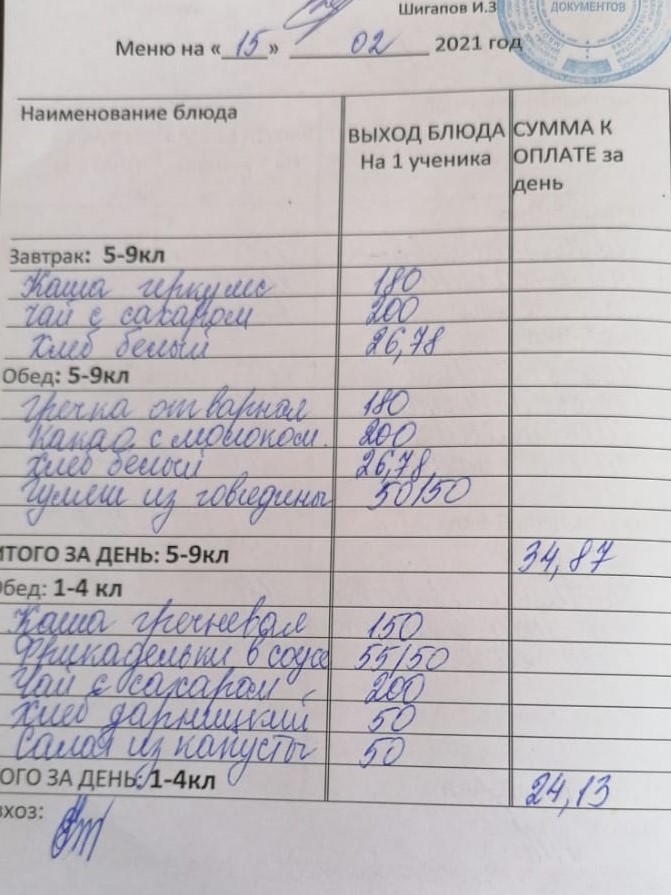 Шигапов И.З
ДОКУМЕНТОВ
Меню на «15» 02 2021 год
Наименование блюда
ВЫХОД БЛЮДА
На 1 ученика
СУММА К
ОПЛАТЕ за
день
Завтрак: 5-9кл
Каша геркулес 180
Чай с сахаром 200
Хлеб белый 26,78
Обед: 5-9кл
Гречка отварная 180
Какао с молоком. 200
Хлеб белый 26,78
Гуляш из говядины 50/50
ИТОГО ЗА ДЕНЬ: 5-9кл 34,87
Обед: 1-4 кл
Каша гречневая 150
Фрикадельки в соусе 55/50
Чай с сахаром 200
Хлеб дарницкий 50
Салат из капусты 50
ОГО ЗА ДЕНЬ: 1-4кл 24,13
вхоз: